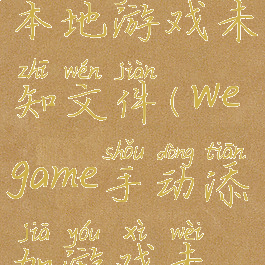 本地游戏未
zhī wén jiàn
知文件(we
shǒu dòng tiān
game手动添
jiā yóu xì wèi
加游戏未